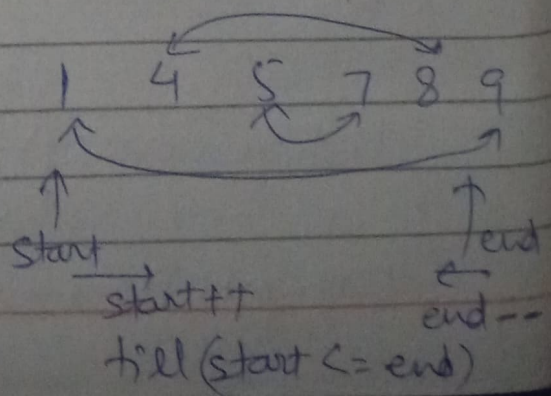 1 4 5 7 8 9
start end
start++ end--
till (start <= end)